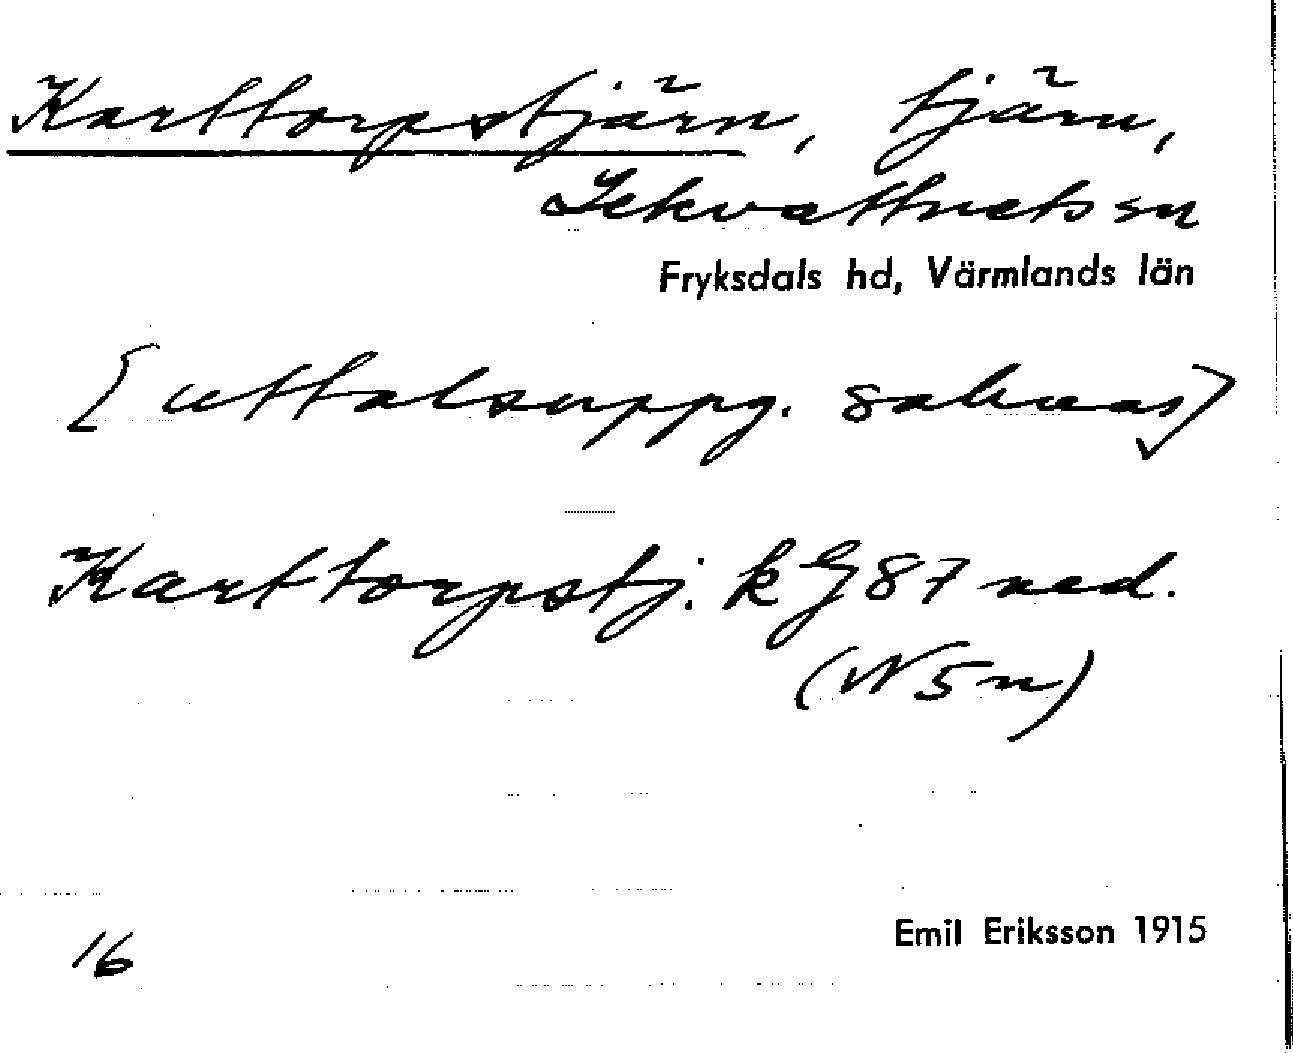 Karttorpstjärn, tjärn,
Lekvattnets sn
Fryksdals hd, Värmlands län
[uttalsuppg. saknas]
Karttorpstj. k G 87 ned.
(N 5 n)
16
Emil Eriksson 1915